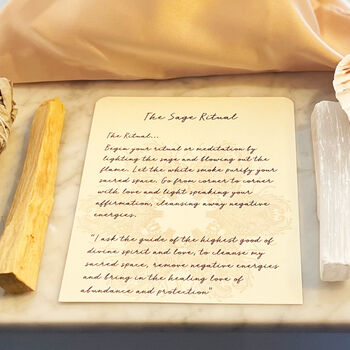 The Sage Ritual
The Ritual...
Begin your ritual or meditation by
lighting the sage and blowing out the
flame. Let the white smoke purify your
sacred space. Go from corner to corner
with love and light speaking your
affirmation, cleansing away negative
energies.
"I ask the guide of the highest good of
divine spirit and love, to cleanse my
sacred space, remove negative energies
and bring in the healing love of
abundance and protection"